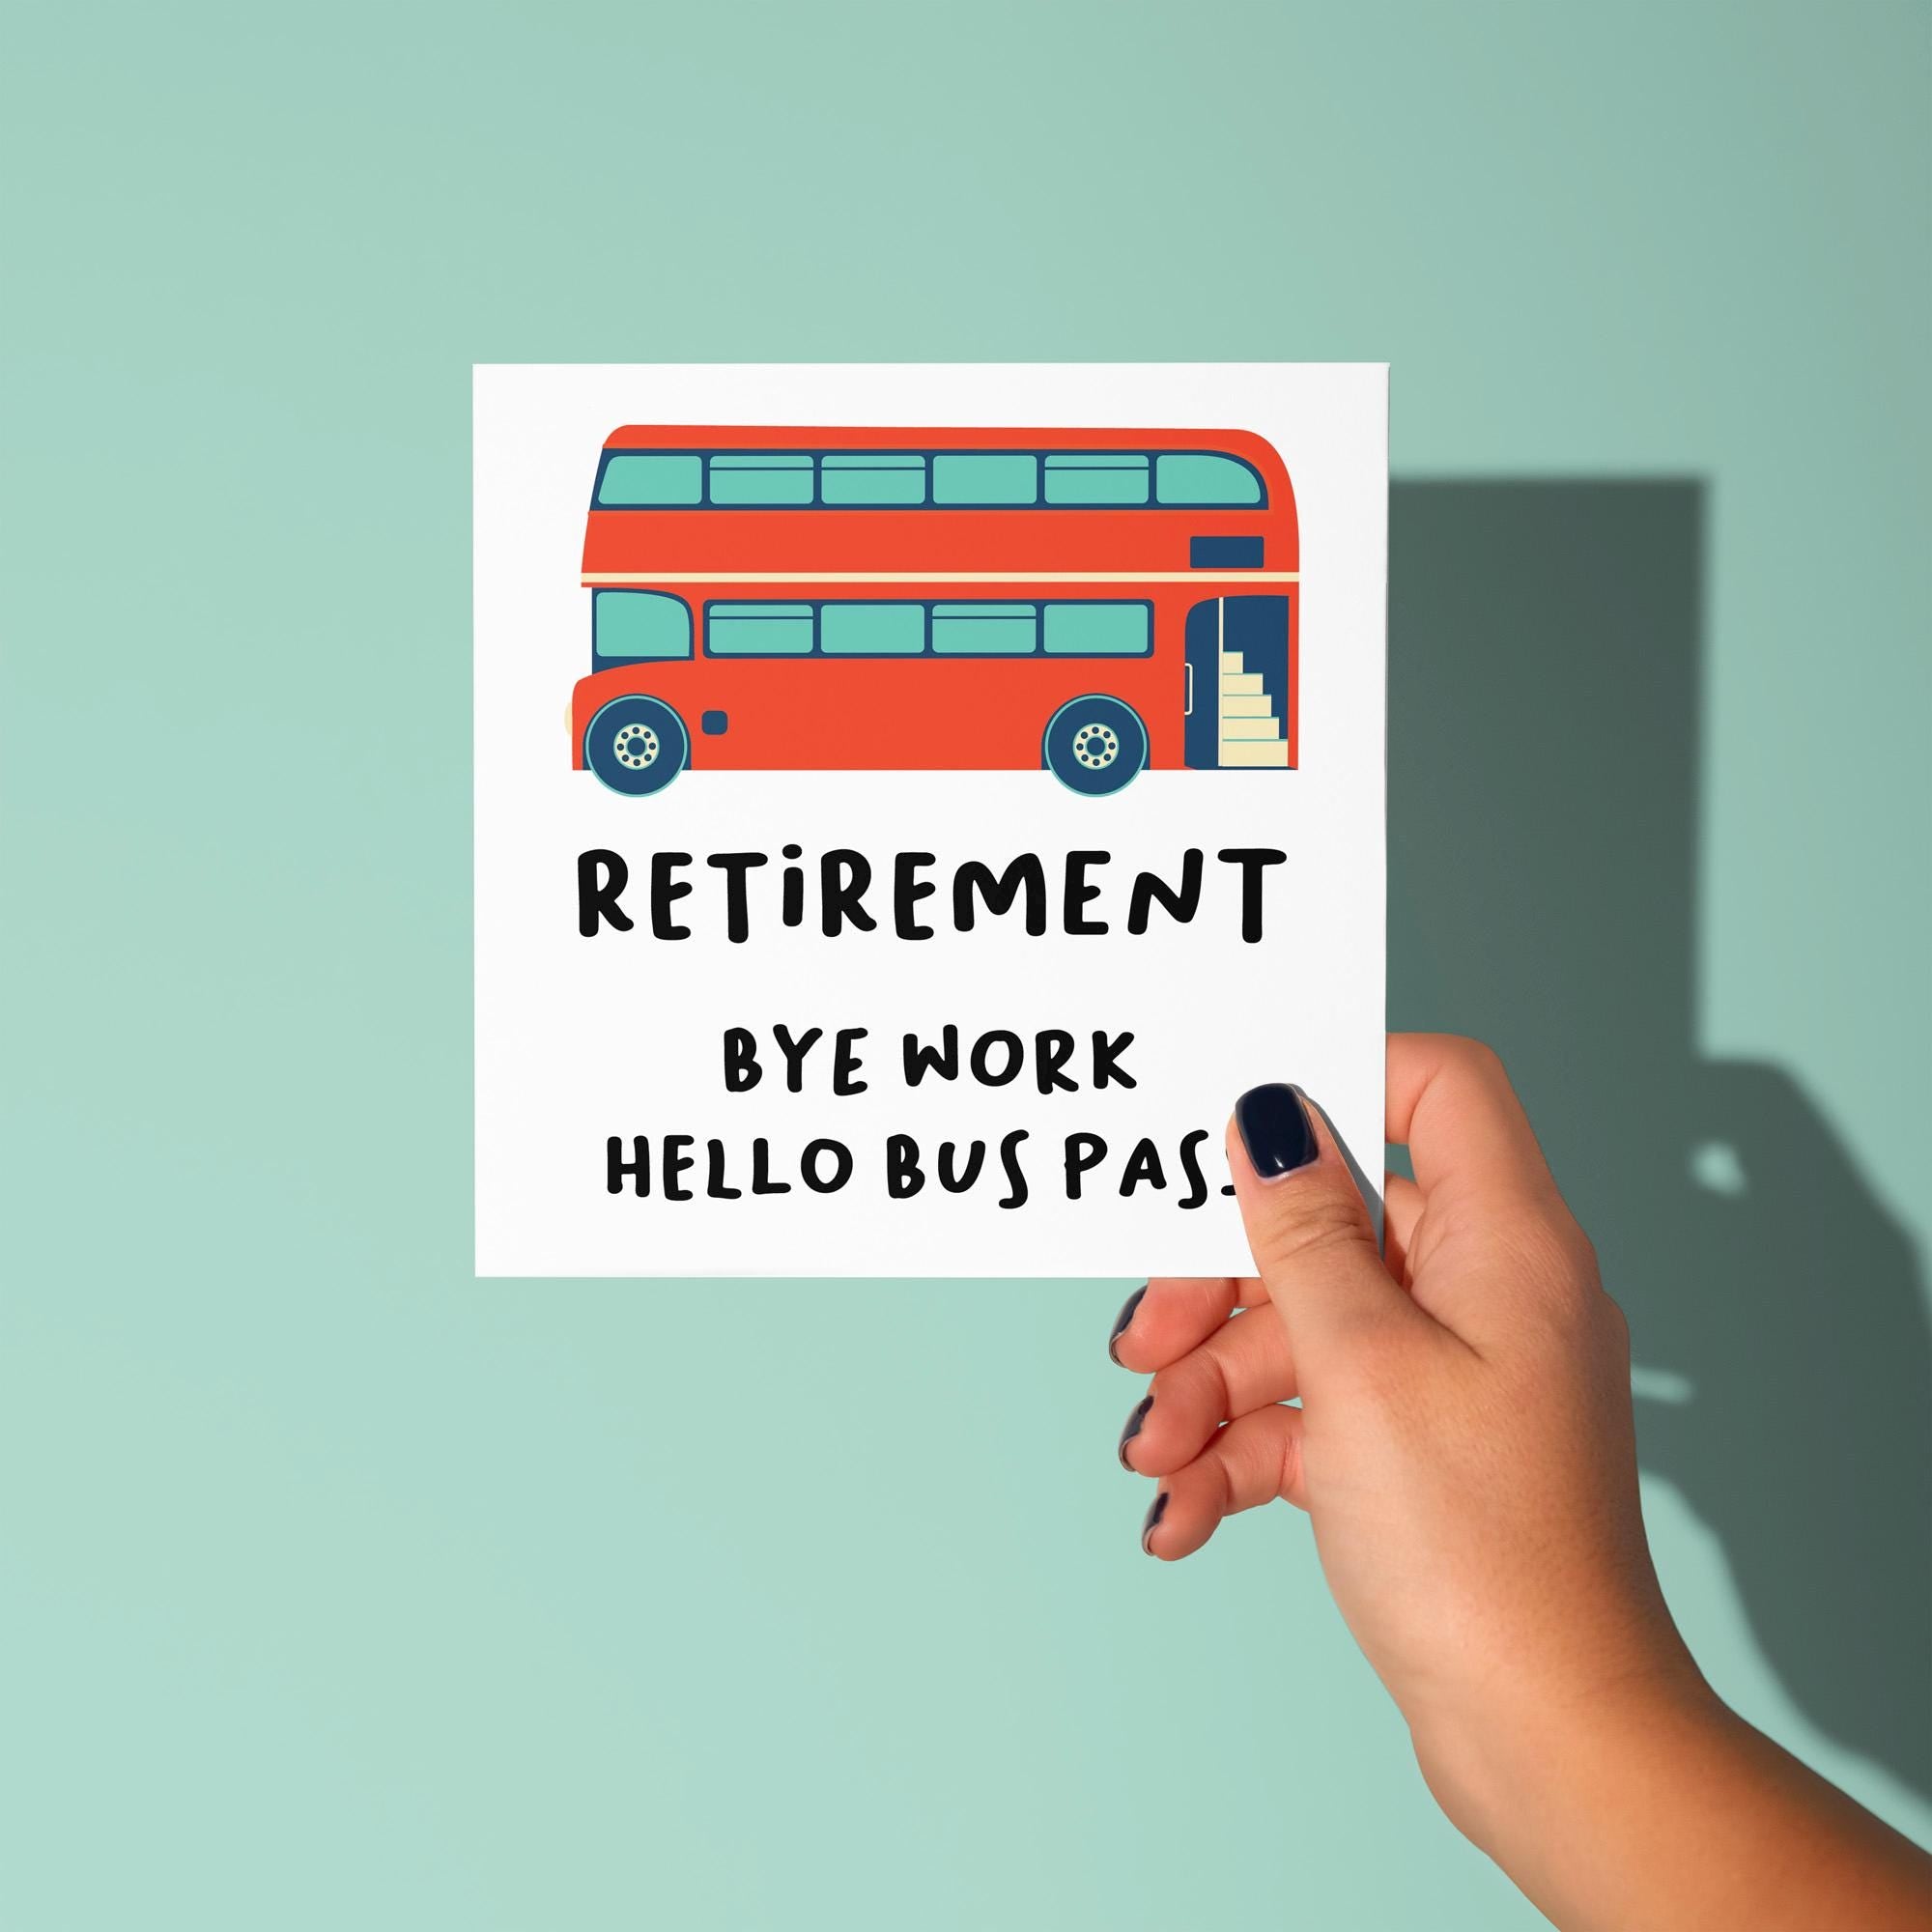 RETiREMENT
BYE WORK
HELLO BUS PASS